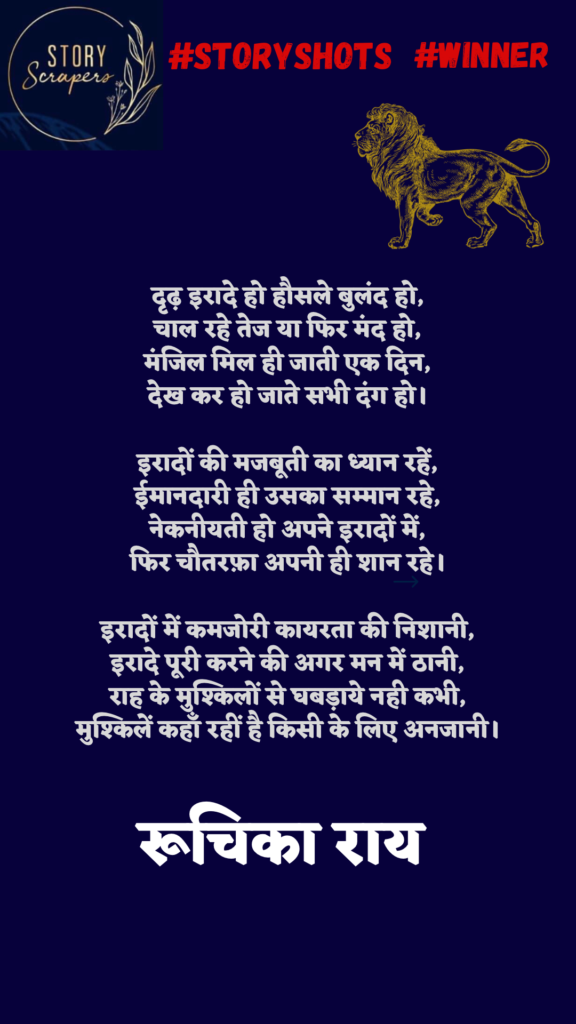 STORY
Scrapers
#STORYSHOTS #WINNER
दृढ़ इरादे हो हौसले बुलंद हो,
चाल रहे तेज या फिर मंद हो,
मंजिल मिल ही जाती एक दिन,
देख कर हो जाते सभी दंग हो।
इरादों की मजबूती का ध्यान रहें,
ईमानदारी ही उसका सम्मान रहे,
नेकनीयती हो अपने इरादों में,
फिर चौतरफ़ा अपनी ही शान रहे।
इरादों में कमजोरी कायरता की निशानी,
इरादे पूरी करने की अगर मन में ठानी,
राह के मुश्किलों से घबड़ाये नही कभी,
मुश्किलें कहाँ रहीं है किसी के लिए अनजानी।
रूचिका राय